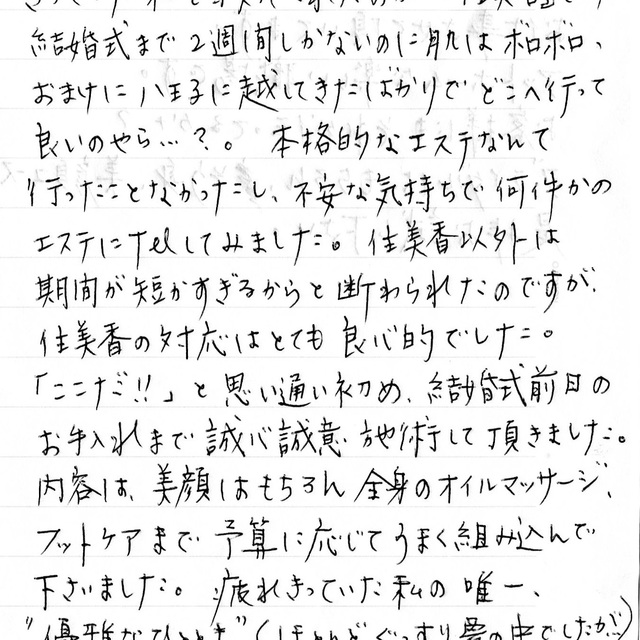 結婚式まで2週間しかないのに肌はボロボロ、
おまけに八王子に越してきたばかりでどこへ行って
良いのやら…?。本格的なエステなんて
行ったことなかったし、不安な気持ちで何件かの
エステにTelしてみました。佳美香以外は
期間が短かすぎるからと断わられたのですが、
佳美香の対応はとても良心的でした。
「ここだ!!」と思い通い初め、結婚式前日の
お手入れまで誠心誠意施術して頂きました。
内容は、美顔はもちろん全身のオイルマッサージ、
フットケアまで予算に応じてうまく組み込んで
下さいました。疲れきっていた私の唯一、
"優雅なひととき"(ほとんどぐっすり夢の中でしたが)